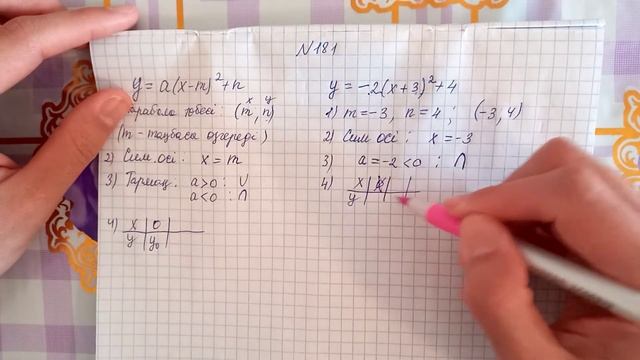 N181
y = a(x-m)²+n
x y
парабола төбесі: (m, n)
(m - таңбасы өзгереді)
2) Сим. осі: x = m
3) Тармақ. a>0: ∪
a<0: ∩
4) x | 0 |
y | y₀ |
y = -2(x+3)²+4
1) m = -3, n = 4; (-3, 4)
2) Сим осі: x = -3
3) a = -2 < 0 : ∩
4) x
y